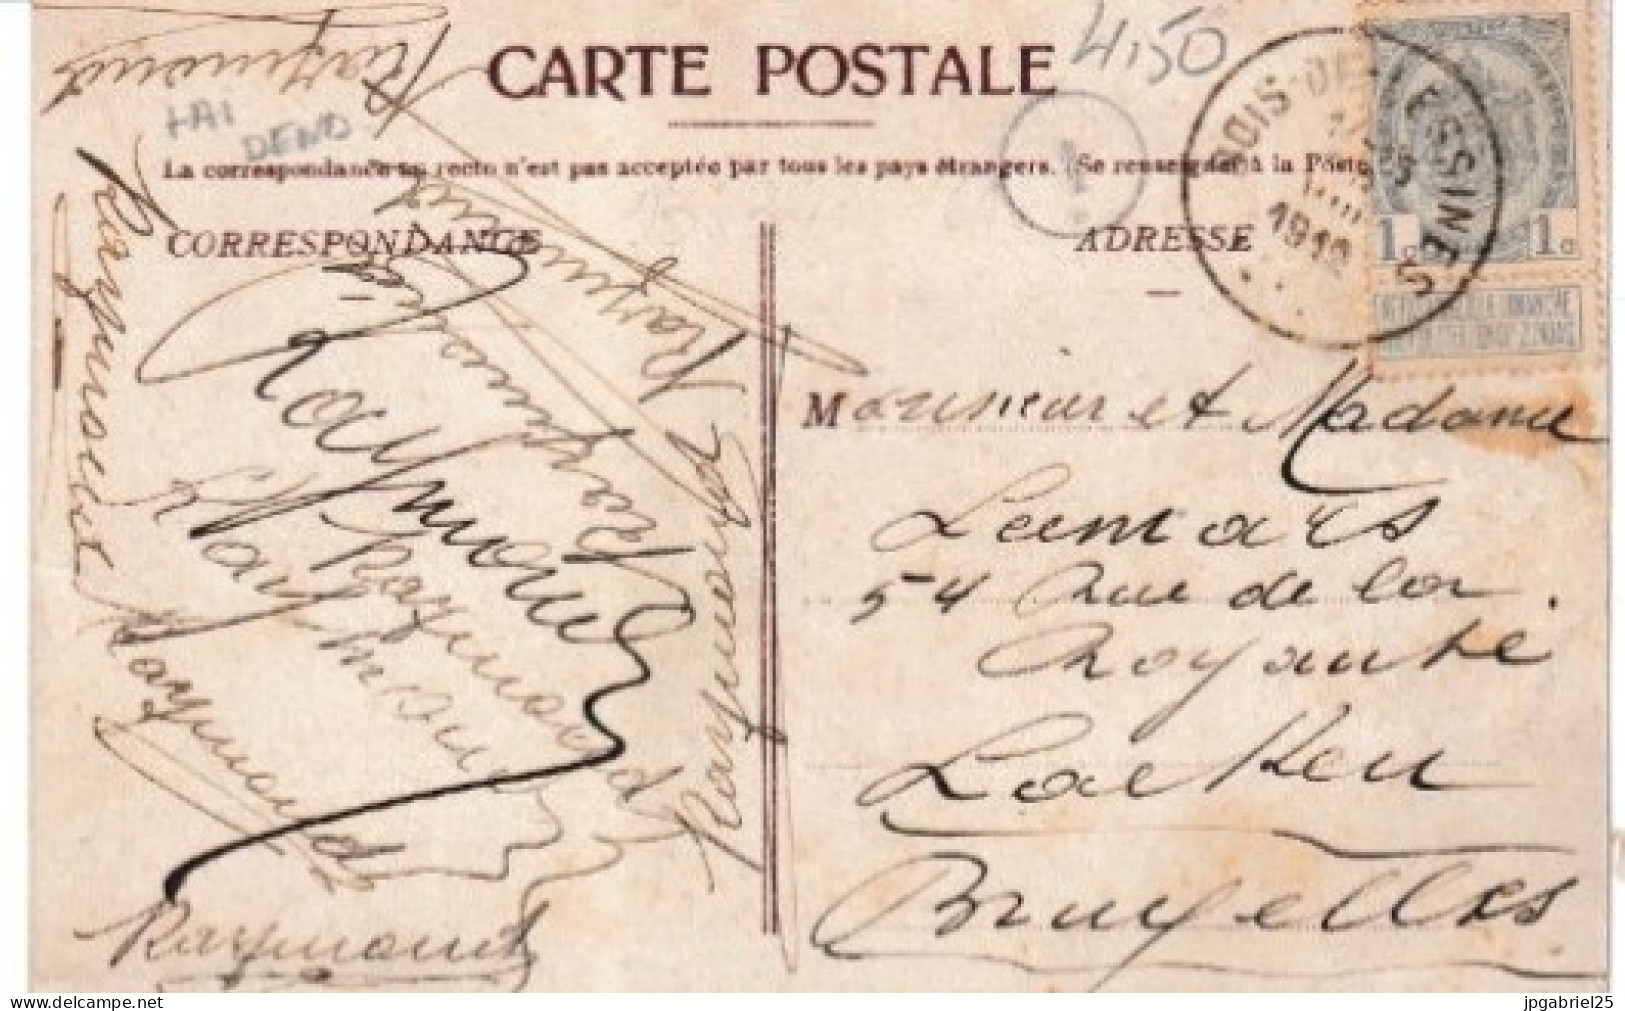 CARTE POSTALE
4,50
La correspondance au recto n'est pas acceptée par tous les pays étrangers. (Se renseigner à la Poste
CORRESPONDANCE
ADRESSE
BOIS-DE-LESSINES
1910
1c 1c
Raymond
Raymond
Raymond
Raymond
Raymond
Raymond
Raymond
Raymond
Raymond
Monsieur et Madame
54 Rue de la
Royauté
Laeken
Bruxelles
jpgabriel25